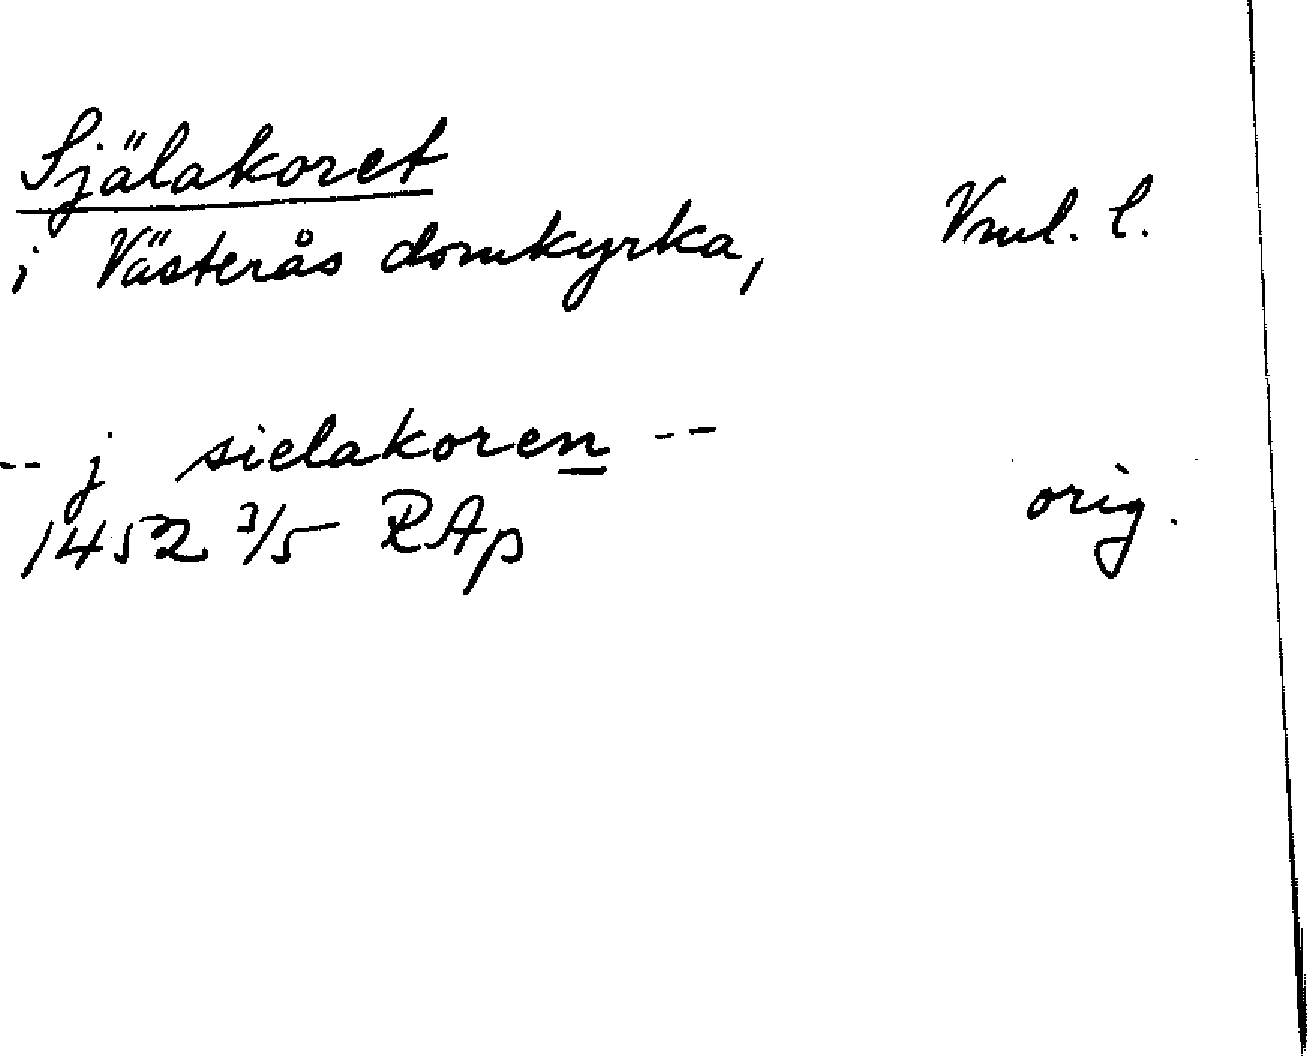 Själakoret
i Västerås domkyrka, Vml. l.
-- j sielakoren --
1452 7/5 RAp orig.